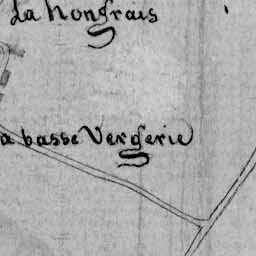 La Hongrais
a basse Vergerie